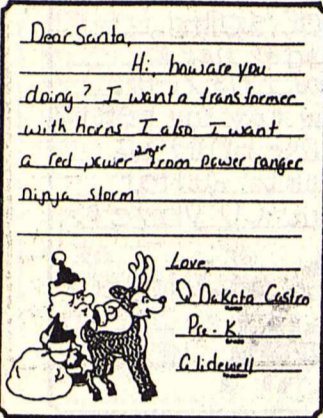 Dear Santa,
Hi, how are you
doing? I want a transformer
with horns I also I want
a red power ranger from power ranger
ninja storm
Love,
Dakota Castro
Pre-K
Glidewell